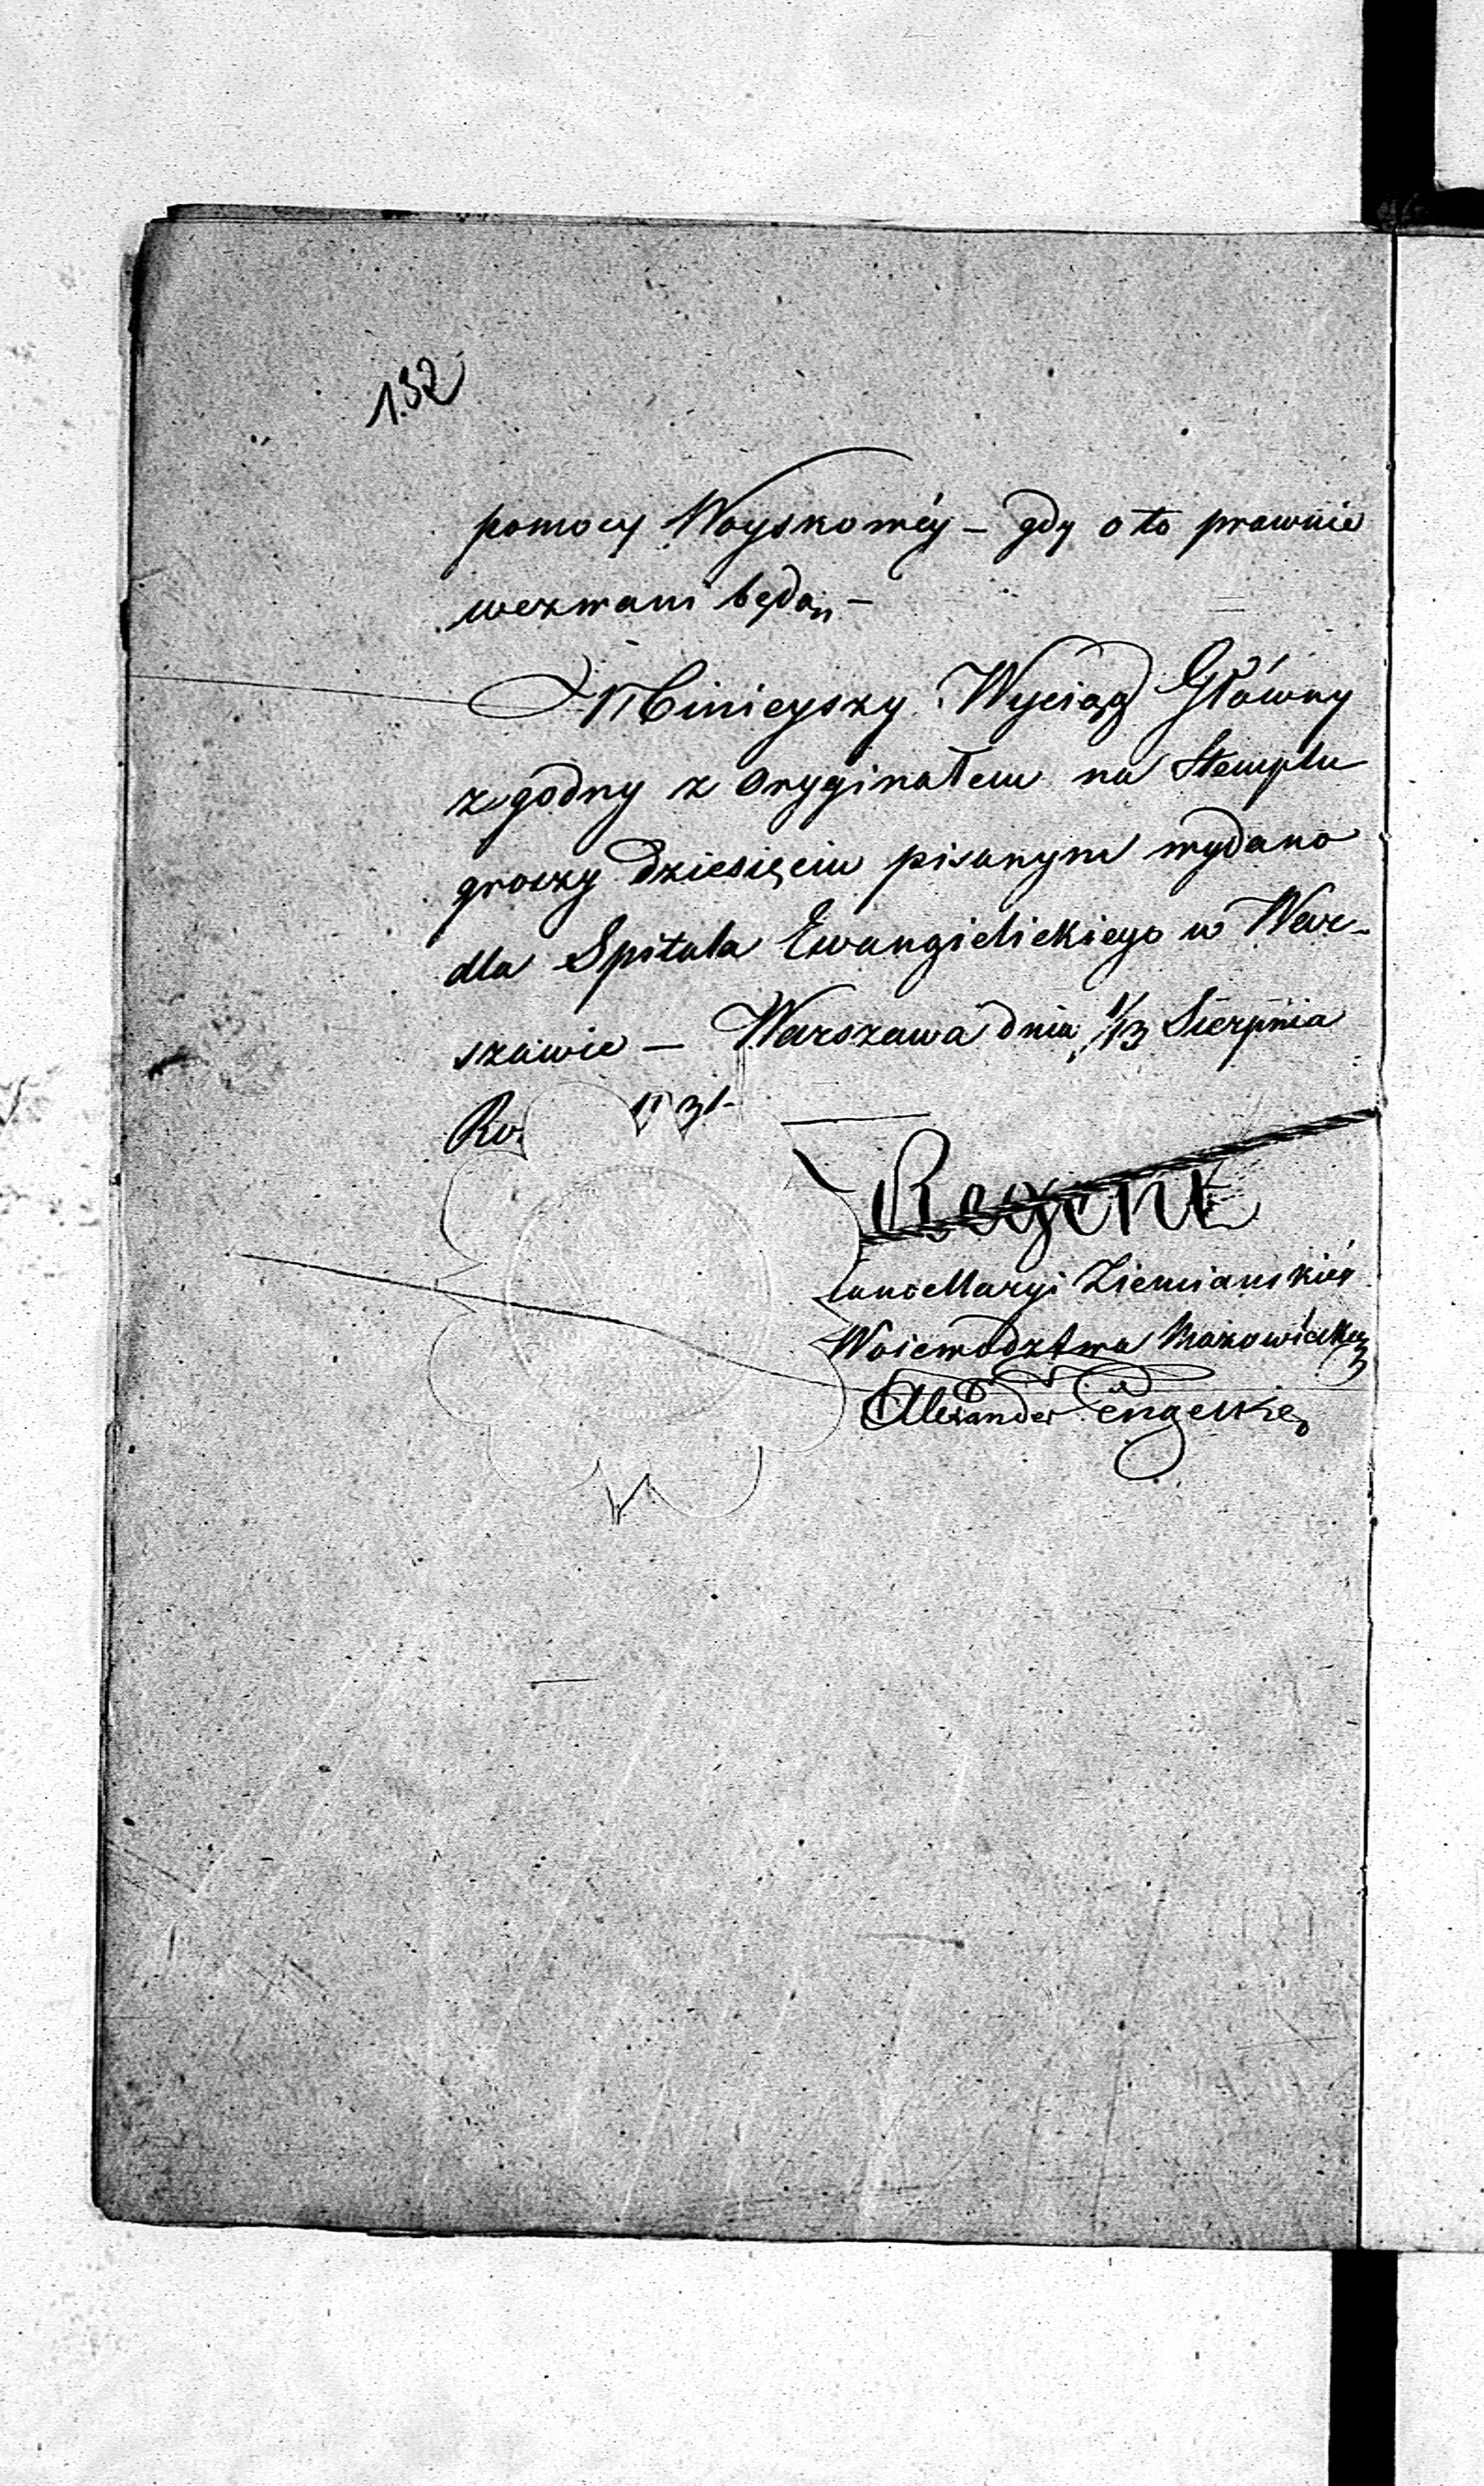 132
pomocy Woyskowéy – gdy o to prawnie
wezwani będą –
Ninieyszy Wyciąg Główny
zgodny z oryginałem na Stemplu
groszy dziesięciu pisanym wydano
dla Spitala Ewangielickiego w War-
szawie – Warszawa dnia 1/13 Sierpnia
Ro.
Regent
Kancellaryi Ziemiańskiéy
Woiewodztwa Mazowieckiego
Alexander Engelke